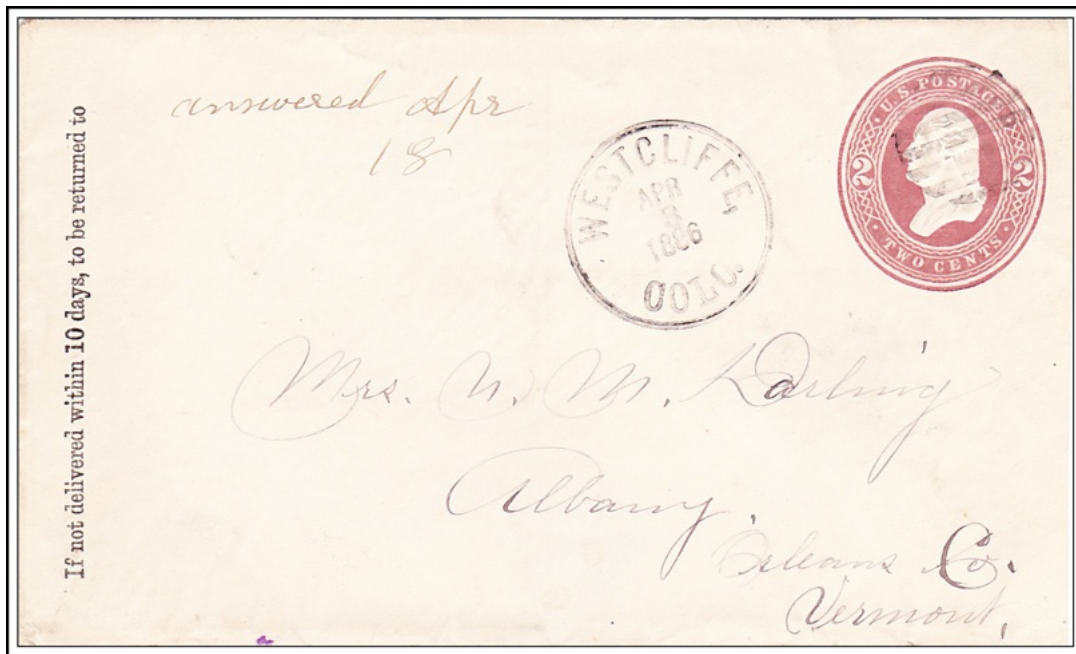 If not delivered within 10 days, to be returned to
answered Apr
18
WESTCLIFFE,
APR
1886
COLO.
U.S. POSTAGE
2 2
TWO CENTS
Mrs. N. M. Darling
Albany,
Orleans Co.
Vermont,